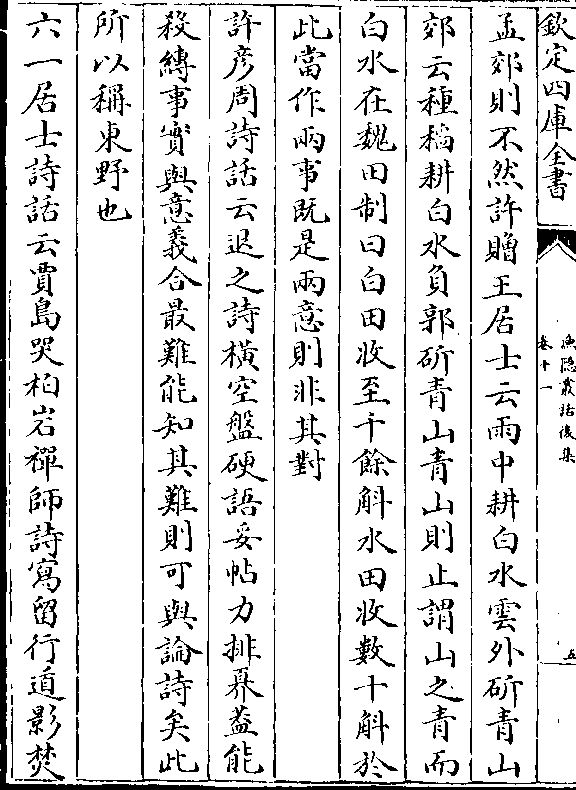 欽定四庫全書
漁隱叢話後集
卷十一
五
孟郊則不然許贈王居士云雨中耕白水雲外斫青山
郊云種稻耕白水負郭斫青山青山則止謂山之青而
白水在魏田制曰白田收至十餘斛水田收數十斛於
此當作兩事既是兩意則非其對
許彦周詩話云退之詩橫空盤硬語妥帖力排奡葢能
殺縛事實與意義合最難能知其難則可與論詩矣此
所以稱東野也
六一居士詩話云賈島哭柏岩禪師詩寫留行道影焚